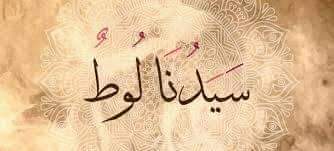 سَيَدُنَا لُوطٌ